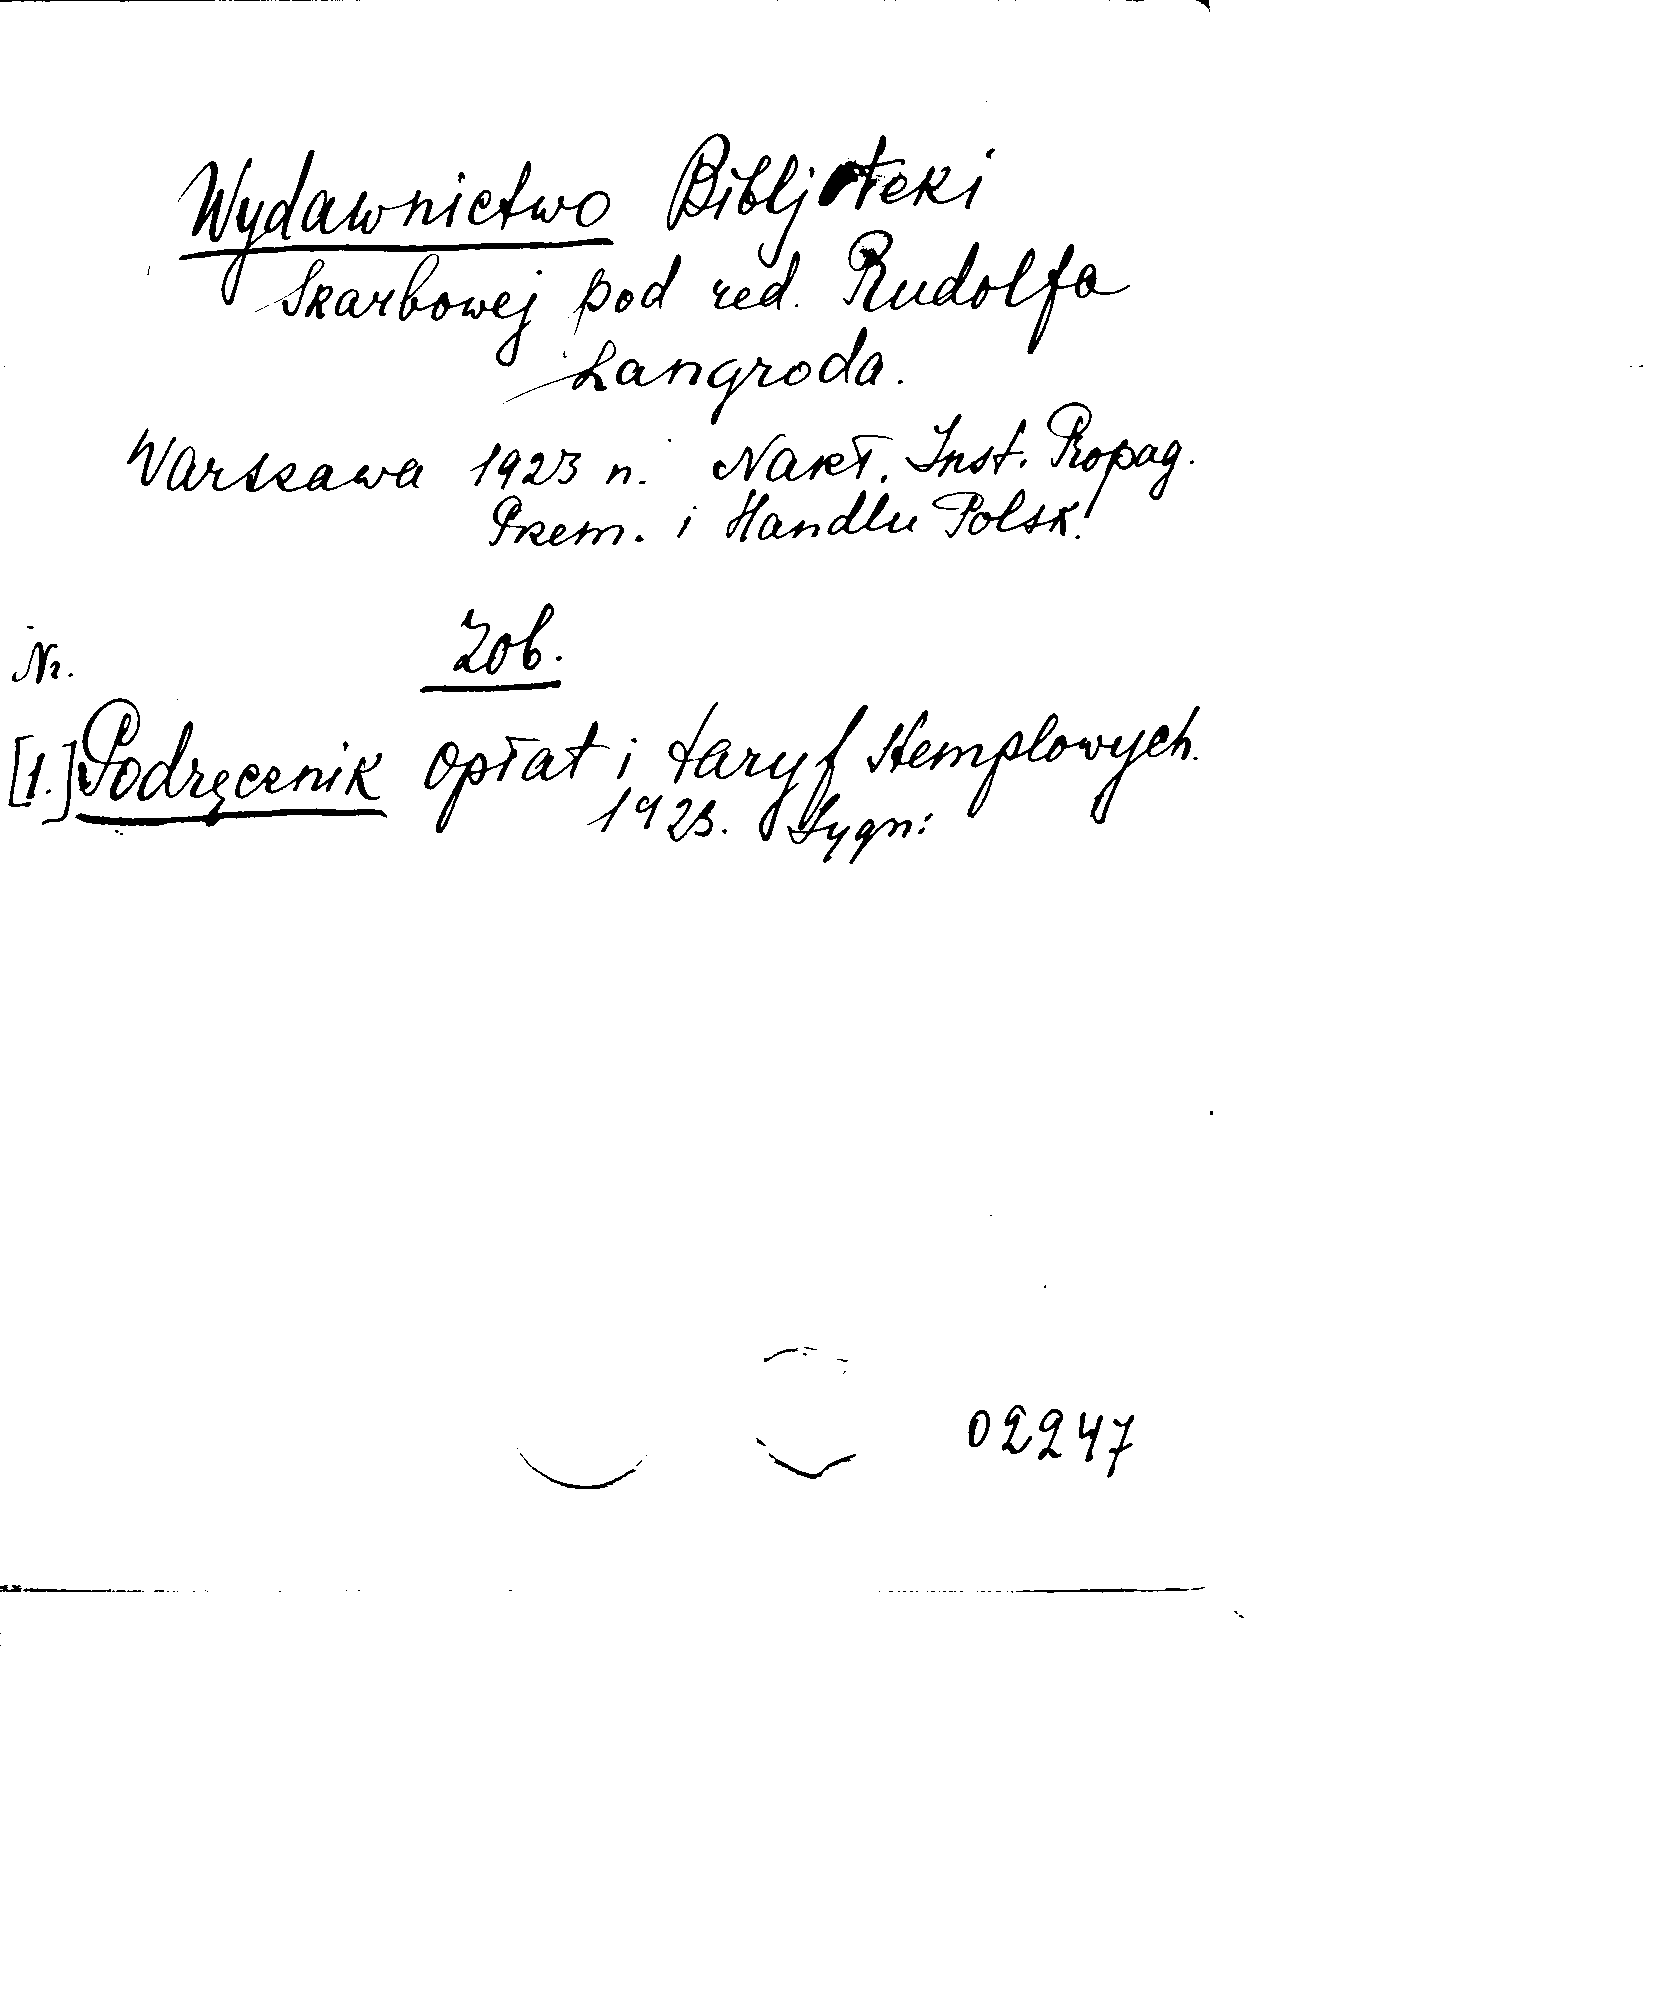 Wydawnictwo Bibljoteki
Skarbowej pod red. Rudolfa
Langroda.
Warszawa 1923 n. Nakł. Inst. Propag.
Przem. i Handlu Polsk.
Nr. Zob.
[1.] Podręcznik opłat i taryf stemplowych.
1923. Sygn:
02247